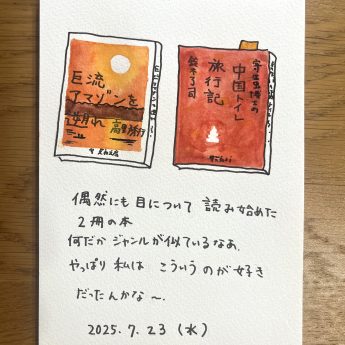 巨流
アマゾンを
遡れ
高野秀行
寄生虫博士の
「中国トイレ
旅行記
鈴木了司
偶然にも目について 読み始めた
2冊の本
何だか ジャンルが似ているなあ。
やっぱり 私は こういうのが好き
だったんかな〜。
2025. 7. 23 (水)